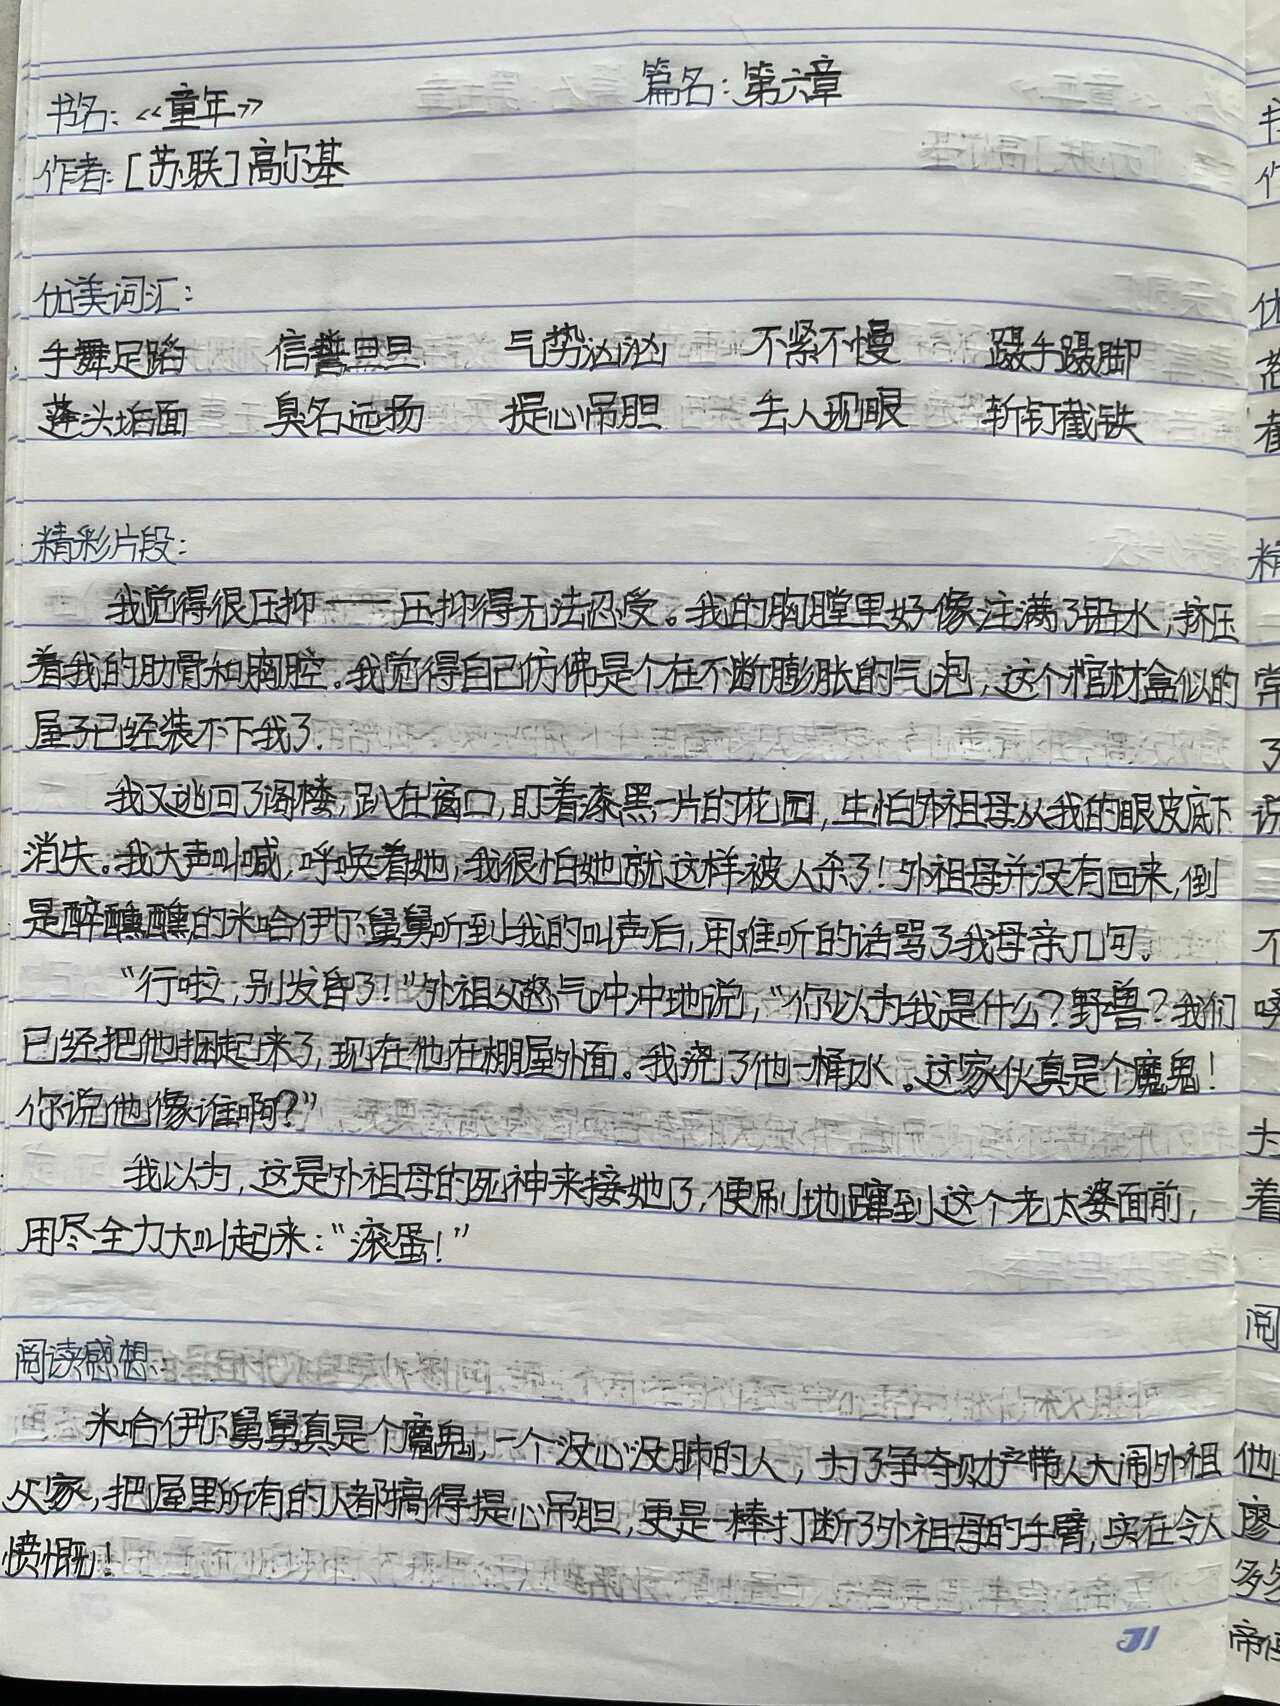 书名：《童年》 篇名：第六章
作者：[苏联]高尔基
优美词汇：
手舞足蹈 信誓旦旦 气势汹汹 不紧不慢 蹑手蹑脚
蓬头垢面 臭名远扬 提心吊胆 丢人现眼 斩钉截铁
精彩片段：
我觉得很压抑——压抑得无法忍受。我的胸膛里好像注满了铅水，挤压
着我的肋骨和胸腔。我觉得自己仿佛是个在不断膨胀的气泡，这个棺材盒似的
屋子已经装不下我了.
我又逃回了阁楼，趴在窗口，盯着漆黑一片的花园，生怕外祖母从我的眼皮底下
消失。我大声叫喊，呼唤着她，我很怕她就这样被人杀了！外祖母并没有回来，倒
是醉醺醺的米哈伊尔舅舅听到我的叫声后，用难听的话骂了我母亲几句。
“行啦，别发昏了！”外祖父怒气冲冲地说，“你以为我是什么？野兽？我们
已经把他捆起来了，现在他在棚屋外面。我浇了他一桶水。这家伙真是个魔鬼！
你说他像谁啊？”
我以为，这是外祖母的死神来接她了，便刷地蹿到这个老太婆面前，
用尽全力大叫起来：“滚蛋！”
阅读感想：
米哈伊尔舅舅真是个魔鬼，一个没心没肺的人，为了争夺财产带人大闹外祖
父家，把屋里所有的人都搞得提心吊胆，更是一棒打断了外祖母的手臂，实在令人
愤慨！
31